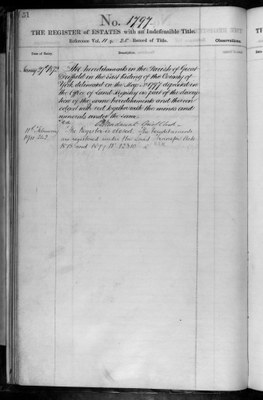 51
No. 1797.
THE REGISTER of ESTATES with an Indefeasible Title.
Reference Vol. 18 p. 25 Record of Title.
Date of Entry. Description. Observations.
January 27th 1872 The hereditaments in the Parish of Great
Driffield in the East Riding of the County of
York delineated on the Map 1797 deposited in
the Office of Land Registry as part of the descrip
tion of the same hereditaments and thereon
edged with red together with the mines and
minerals under the same.
The Register is closed. The hereditaments
are registered under the Land Transfer Acts
1875 and 1897